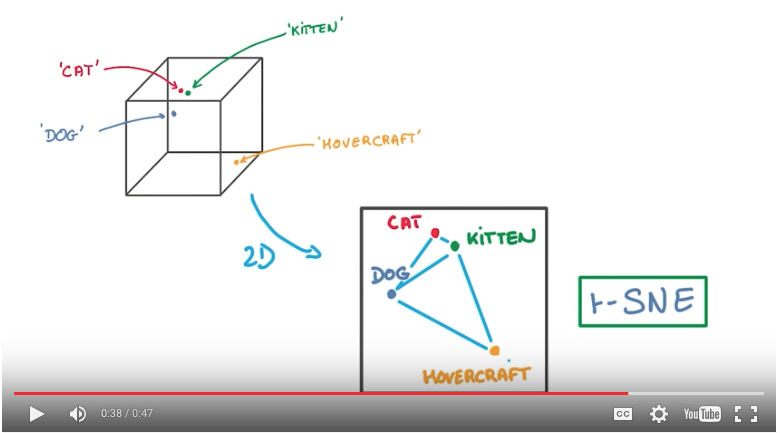 'KITTEN'
'CAT'
'DOG'
'HOVERCRAFT'
2D
CAT
KITTEN
DOG
HOVERCRAFT
t-SNE
0:38 / 0:47
CC
YouTube